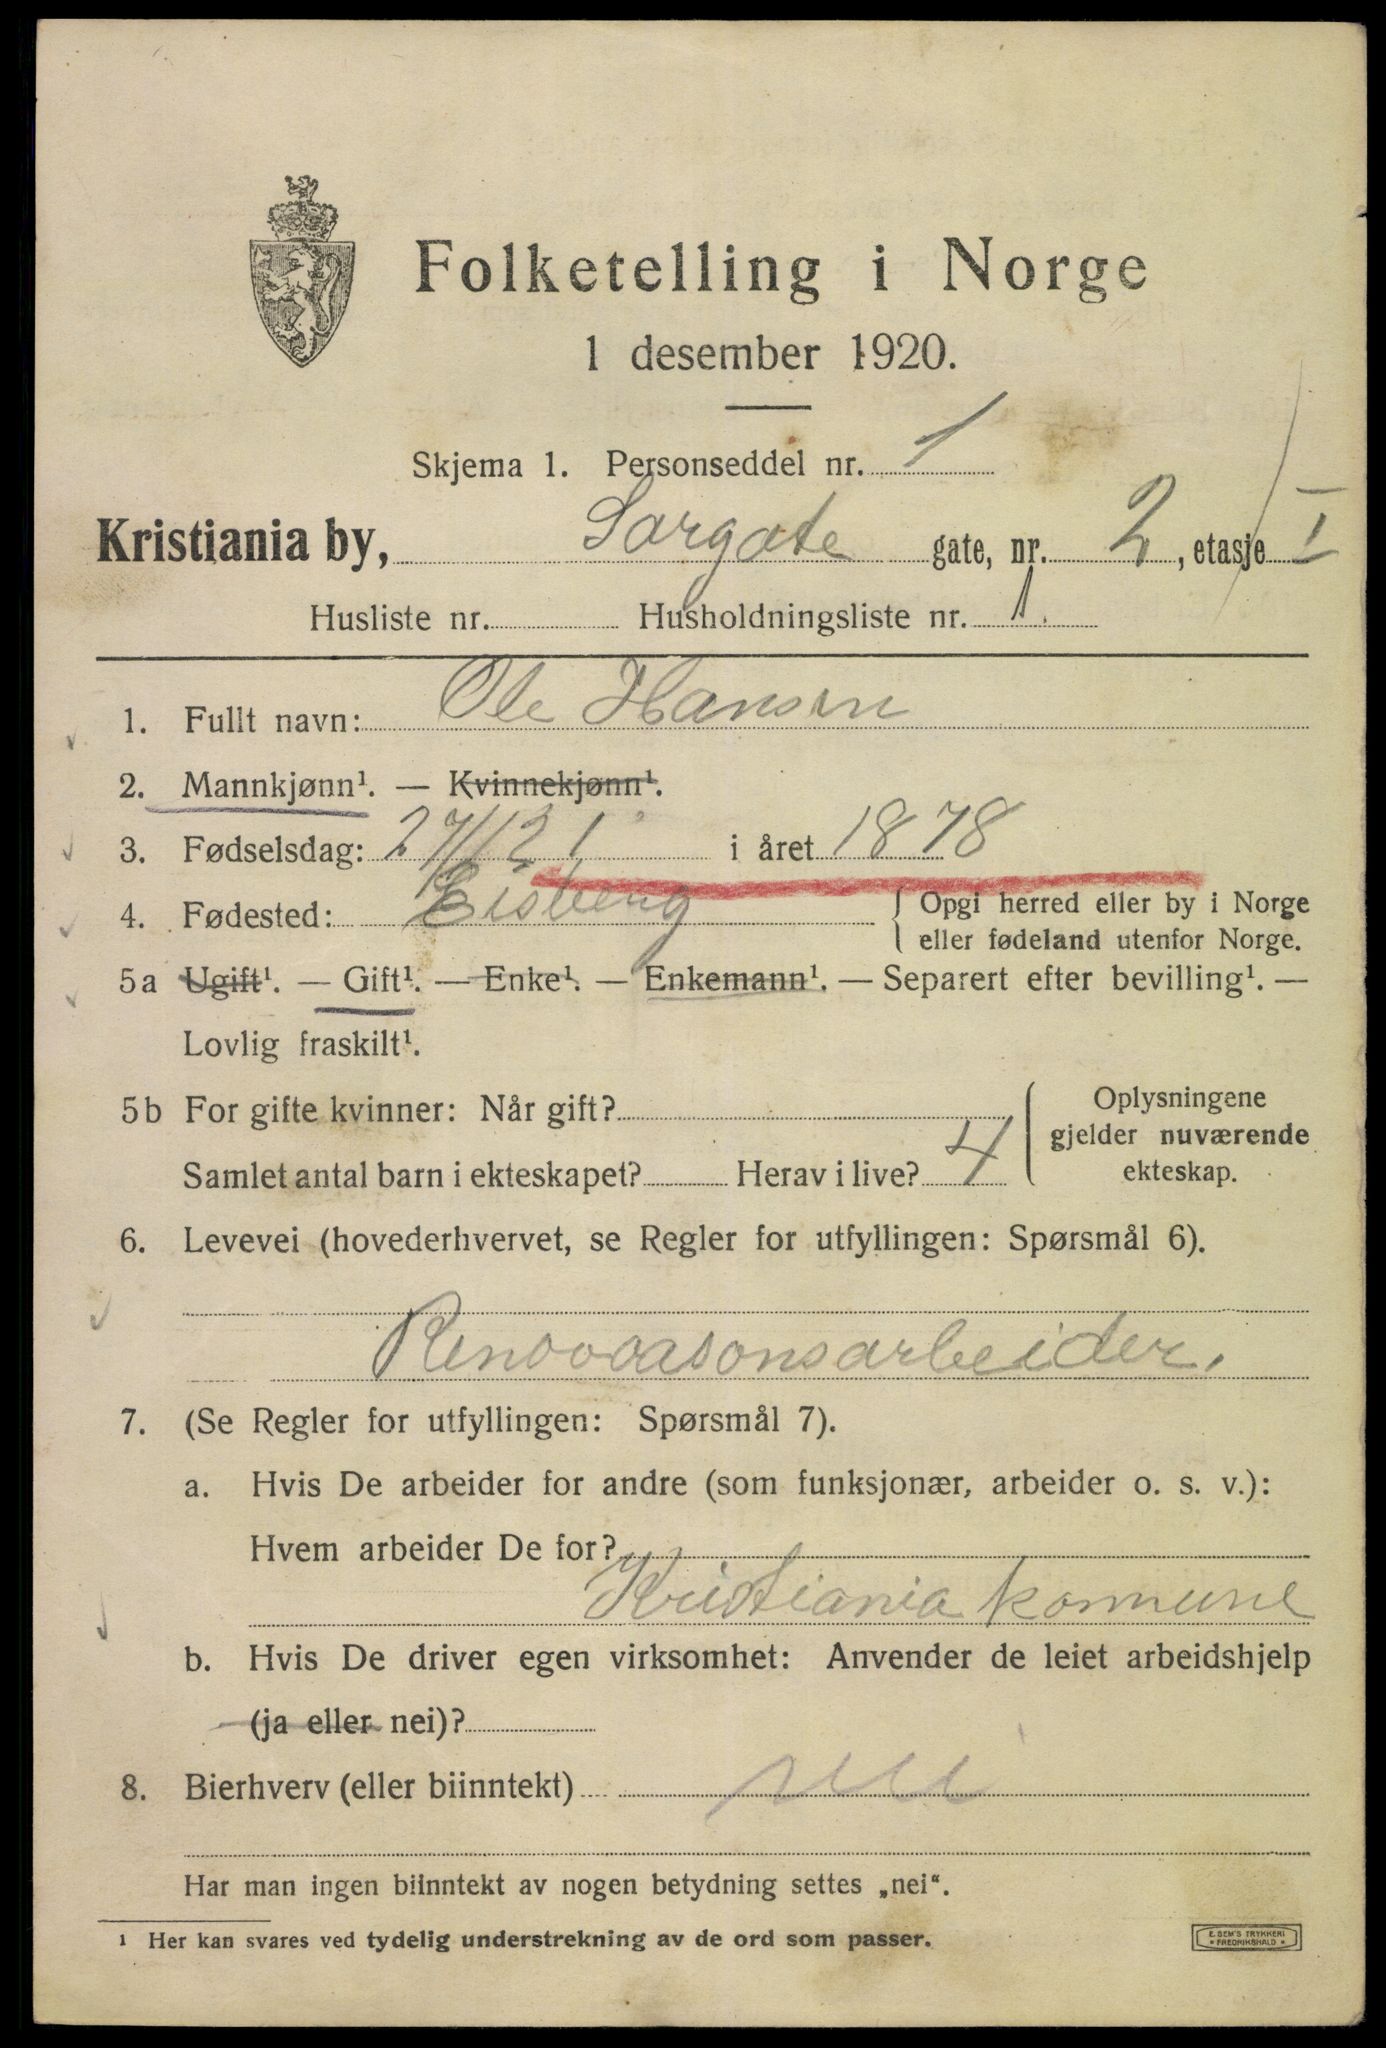 Folketelling i Norge
1 desember 1920.
Skjema 1. Personseddel nr. 1
Kristiania by, Sorgate gate, nr. 2, etasje I
Husliste nr. Husholdningsliste nr. 1.
1. Fullt navn: Ole Hansen
2. Mannkjønn¹. — Kvinnekjønn¹.
3. Fødselsdag: 27/12 i året 1878
4. Fødested: Eisberg { Opgi herred eller by i Norge
eller fødeland utenfor Norge.
5a Ugift¹. — Gift¹. — Enke¹. — Enkemann¹. — Separert efter bevilling¹. —
Lovlig fraskilt¹.
5b For gifte kvinner: Når gift?
Samlet antal barn i ekteskapet? Herav i live? 4
{ Oplysningene
gjelder nuværende
ekteskap.
6. Levevei (hovederhvervet, se Regler for utfyllingen: Spørsmål 6).
Renovasonsarbeider.
7. (Se Regler for utfyllingen: Spørsmål 7).
a. Hvis De arbeider for andre (som funksjonær, arbeider o. s. v.):
Hvem arbeider De for?
Kristiania kommune
b. Hvis De driver egen virksomhet: Anvender de leiet arbeidshjelp
(ja eller nei)?
8. Bierhverv (eller biinntekt) nei
Har man ingen biinntekt av nogen betydning settes „nei“.
¹ Her kan svares ved tydelig understrekning av de ord som passer.
E. SEM'S TRYKKERI
* FREDRIKSHALD *